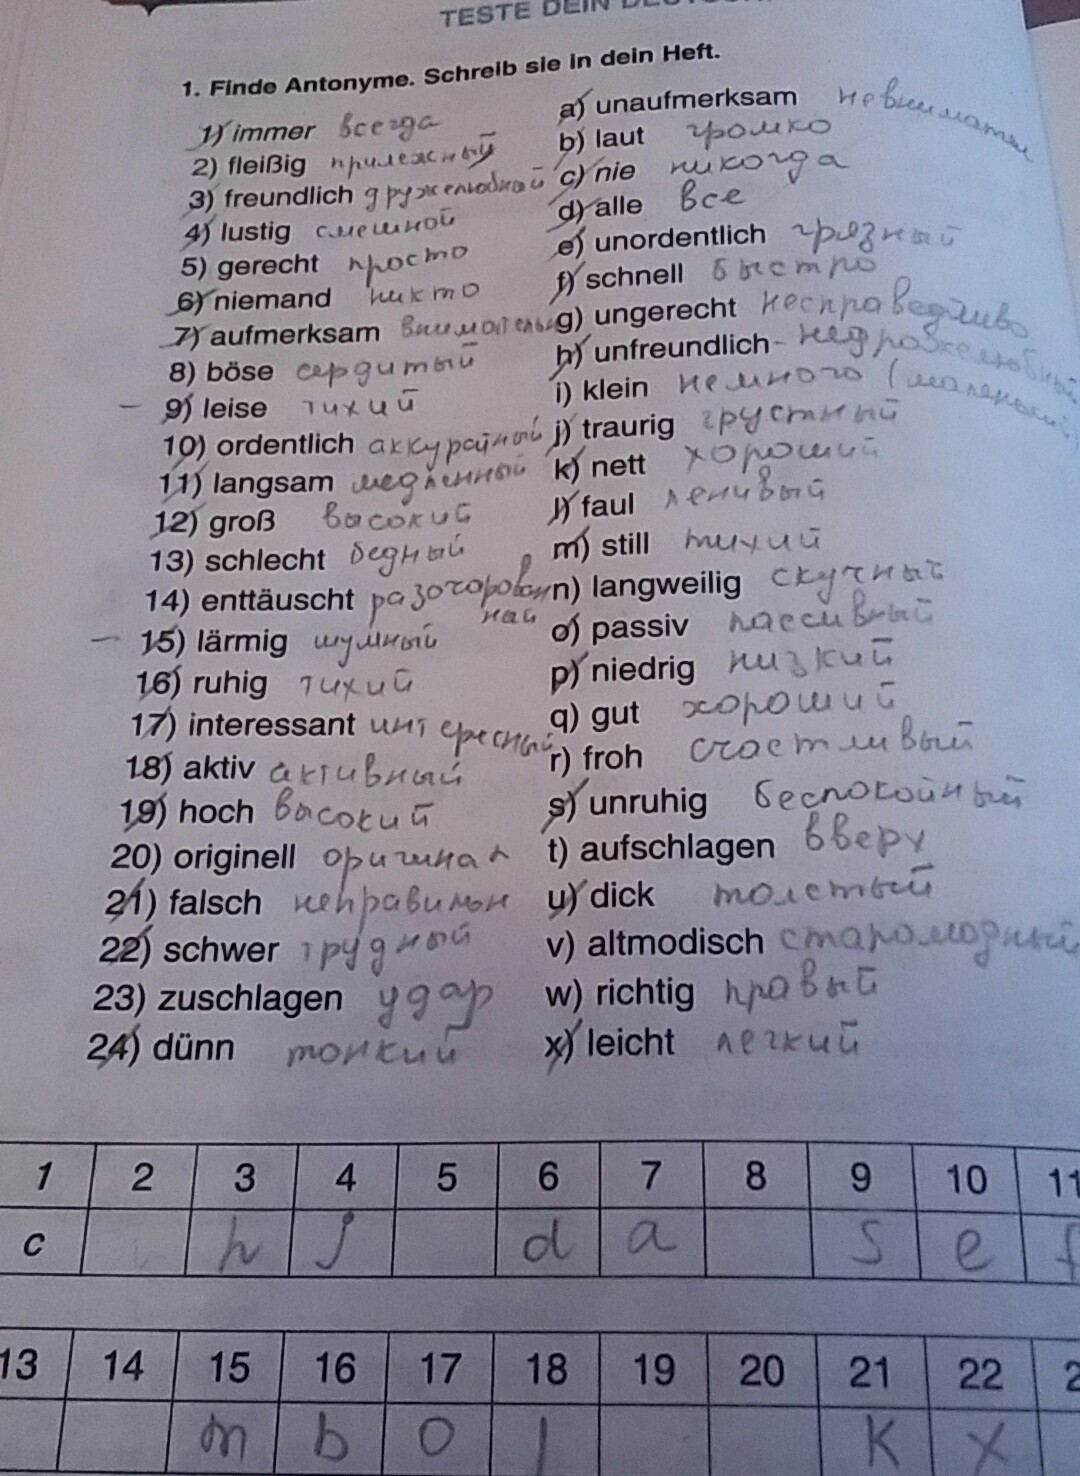 TESTE DEIN
1. Finde Antonyme. Schreib sie in dein Heft.
1) immer всегда
2) fleißig прилежный
3) freundlich дружелюбный
4) lustig смешной
5) gerecht просто
6) niemand никто
7) aufmerksam
8) böse сердитый
9) leise тихий
10) ordentlich
11) langsam медленный
12) groß высокий
13) schlecht бедный
14) enttäuscht
15) lärmig шумный
16) ruhig тихий
17) interessant интересный
18) aktiv активный
19) hoch высокий
20) originell оригинал
21) falsch
22) schwer трудный
23) zuschlagen удар
24) dünn тонкий
a) unaufmerksam
b) laut громко
c) nie никогда
d) alle все
e) unordentlich грязный
f) schnell быстро
g) ungerecht
h) unfreundlich -
i) klein немного (маленький)
j) traurig грустный
k) nett хороший
l) faul ленивый
m) still тихий
n) langweilig скучный
o) passiv пассивный
p) niedrig низкий
q) gut хороший
r) froh счастливый
s) unruhig беспокойный
t) aufschlagen вверх
u) dick толстый
v) altmodisch старомодный
w) richtig правый
x) leicht легкий
1 2 3 4 5 6 7 8 9 10 11
c h j d a s e f
13 14 15 16 17 18 19 20 21 22 2
m b o l k x